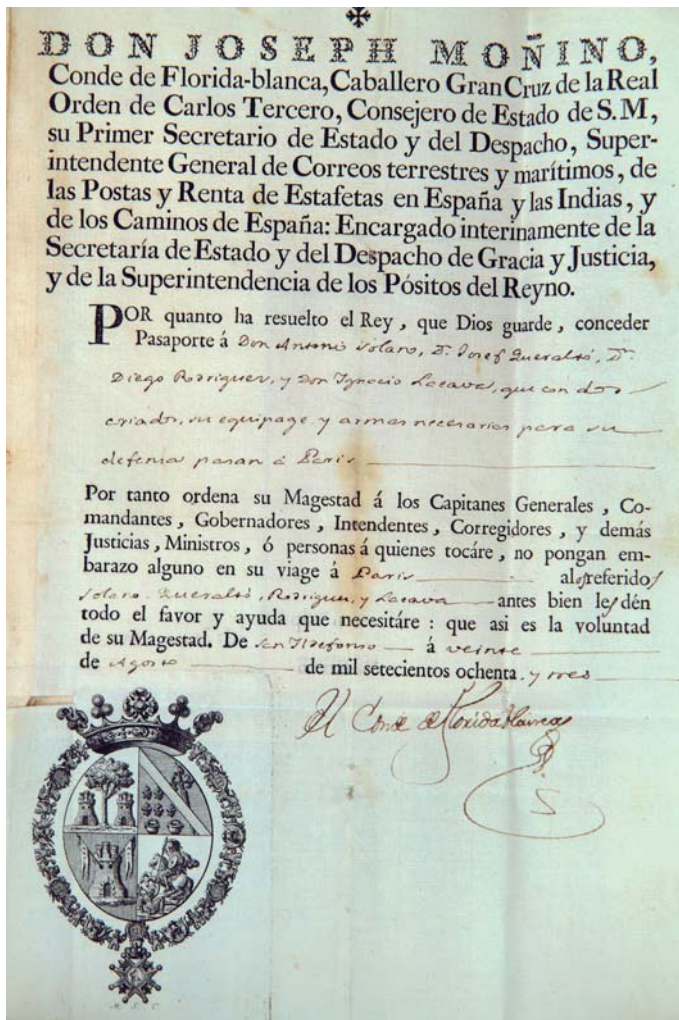 DON JOSEPH MOÑINO,
Conde de Florida-blanca, Caballero Gran Cruz de la Real
Orden de Carlos Tercero, Consejero de Estado de S. M,
su Primer Secretario de Estado y del Despacho, Super-
intendente General de Correos terrestres y marítimos, de
las Postas y Renta de Estafetas en España y las Indias, y
de los Caminos de España: Encargado interinamente de la
Secretaría de Estado y del Despacho de Gracia y Justicia,
y de la Superintendencia de los Pósitos del Reyno.
POR quanto ha resuelto el Rey, que Dios guarde, conceder
Pasaporte á Don Antonio Solano, Dn. Josef Queraltó, Dn.
Diego Rodriguez, y Don Ignacio Lacava, que con dos
criados, su equipage y armas necesarias para su
defensa pasan á Paris
Por tanto ordena su Magestad á los Capitanes Generales, Co-
mandantes, Gobernadores, Intendentes, Corregidores, y demás
Justicias, Ministros, ó personas á quienes tocáre, no pongan em-
barazo alguno en su viage á Paris alos referidos
Solano, Queraltó, Rodriguez, y Lacava antes bien les dén
todo el favor y ayuda que necesitáre: que asi es la voluntad
de su Magestad. De San Ildefonso á veinte
de Agosto de mil setecientos ochenta, y tres
El Conde de Floridablanca
M. S. C.